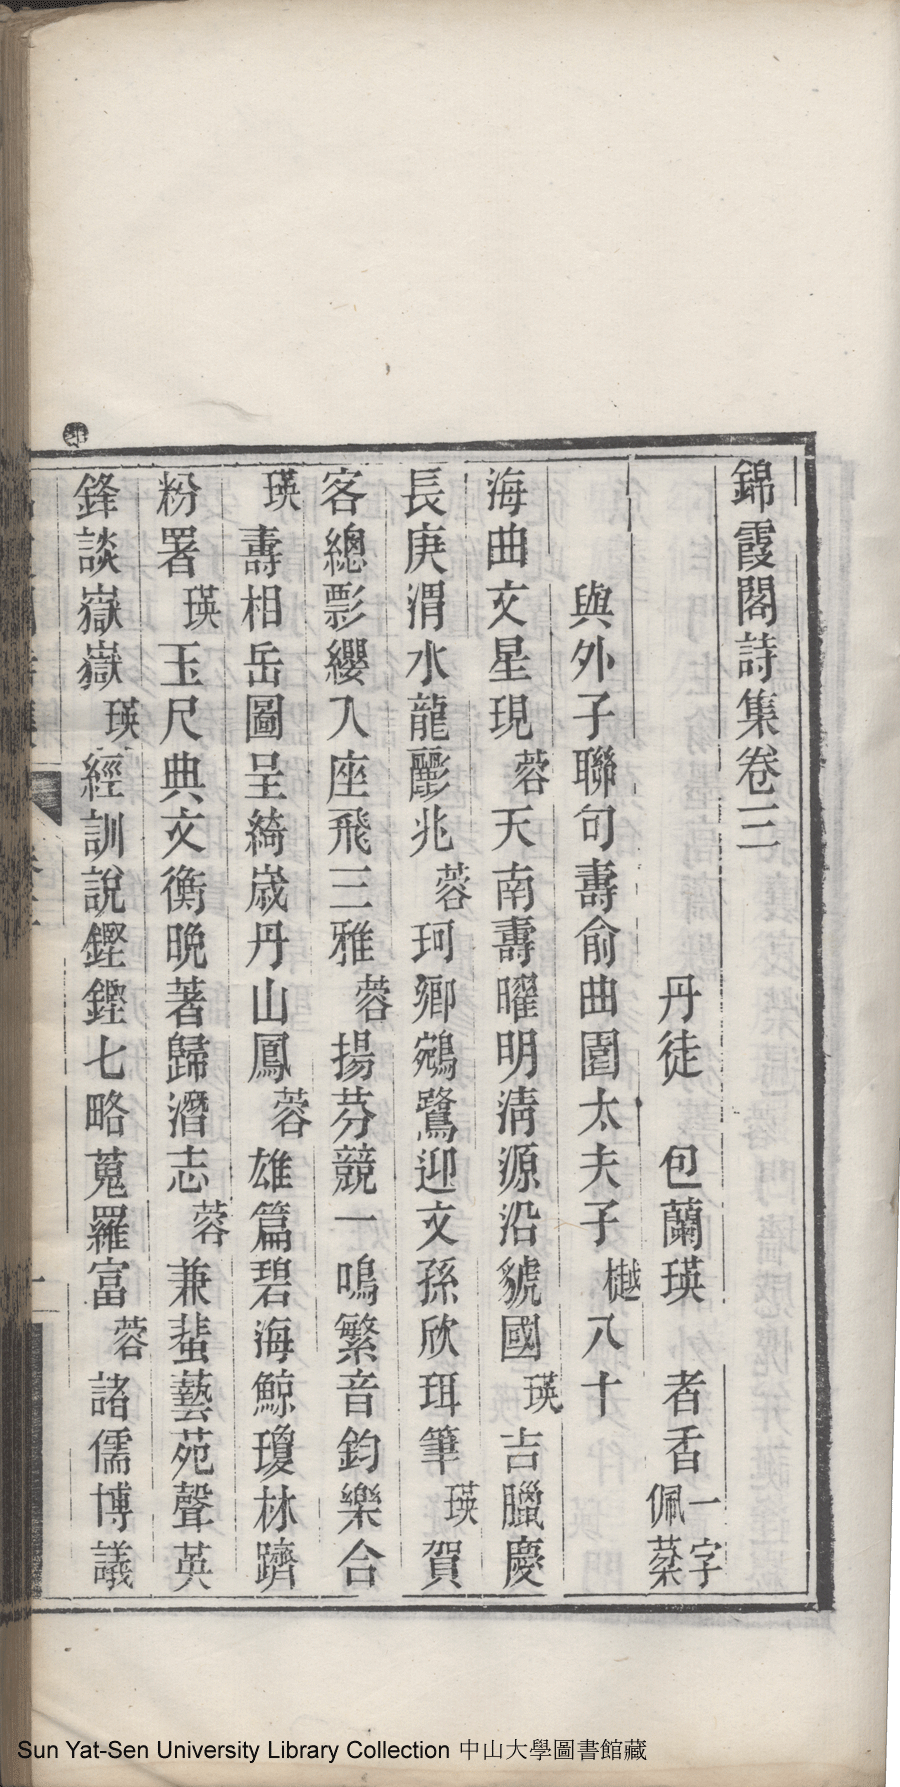 錦霞閣詩集卷三
丹徒 包蘭瑛 者香 一字佩棻
與外子聯句壽俞曲園太夫子 樾 八十
海曲文星現 蓉 天南壽曜明清源沿虢國 瑛 吉臘慶
長庚渭水龍彲兆 蓉 珂鄉鵷鷺迎文孫欣珥筆 瑛 賀
客總影纓入座飛三雅 蓉 揚芬競一鳴繁音鈞樂合
瑛 壽相岳圖呈綺歲丹山鳳 蓉 雄篇碧海鯨瓊林躋
粉署 瑛 玉尺典文衡晚著歸潛志 蓉 兼蜚藝苑聲英
鋒談嶽嶽 瑛 經訓說鏗鏗七略蒐羅富 蓉 諸儒博議
Sun Yat-Sen University Library Collection 中山大學圖書館藏